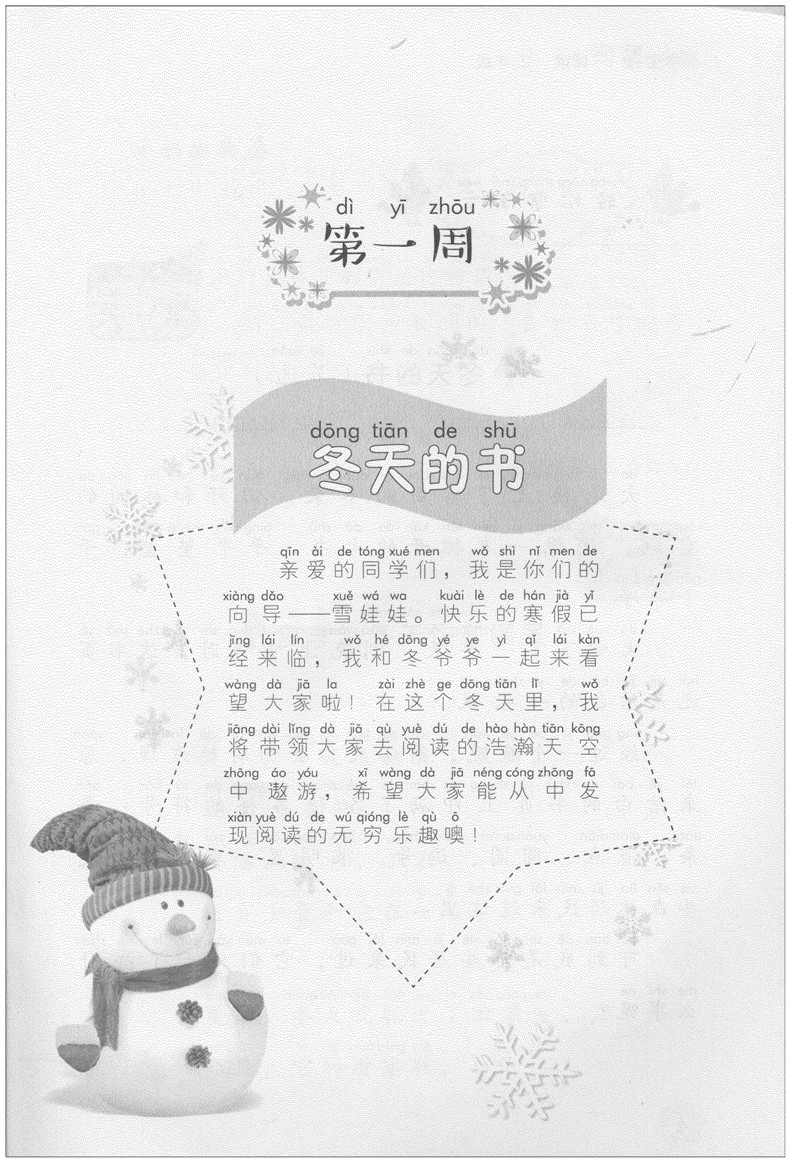 dì yī zhōu
第一周
dōng tiān de shū
冬天的书
qīn ài de tóng xué men wǒ shì nǐ men de
亲爱的同学们，我是你们的
xiàng dǎo xuě wá wa kuài lè de hán jià yǐ
向导——雪娃娃。快乐的寒假已
jīng lái lín wǒ hé dōng yé ye yì qǐ lái kàn
经来临，我和冬爷爷一起来看
wàng dà jiā la zài zhè ge dōng tiān lǐ wǒ
望大家啦！在这个冬天里，我
jiāng dài lǐng dà jiā qù yuè dú de hào hàn tiān kōng
将带领大家去阅读的浩瀚天空
zhōng áo yóu xī wàng dà jiā néng cóng zhōng fā
中遨游，希望大家能从中发
xiàn yuè dú de wú qióng lè qù ō
现阅读的无穷乐趣噢！